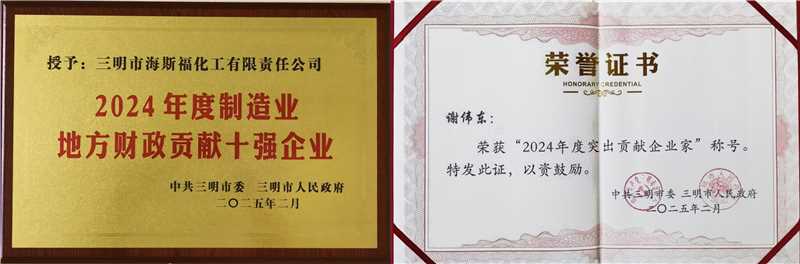 授予：三明市海斯福化工有限责任公司
2024年度制造业
地方财政贡献十强企业
中共三明市委 三明市人民政府
二〇二五年二月
荣誉证书
HONORARY CREDENTIAL
谢伟东：
荣获“2024年度突出贡献企业家”称号。
特发此证，以资鼓励。
中共三明市委 三明市人民政府
二〇二五年二月